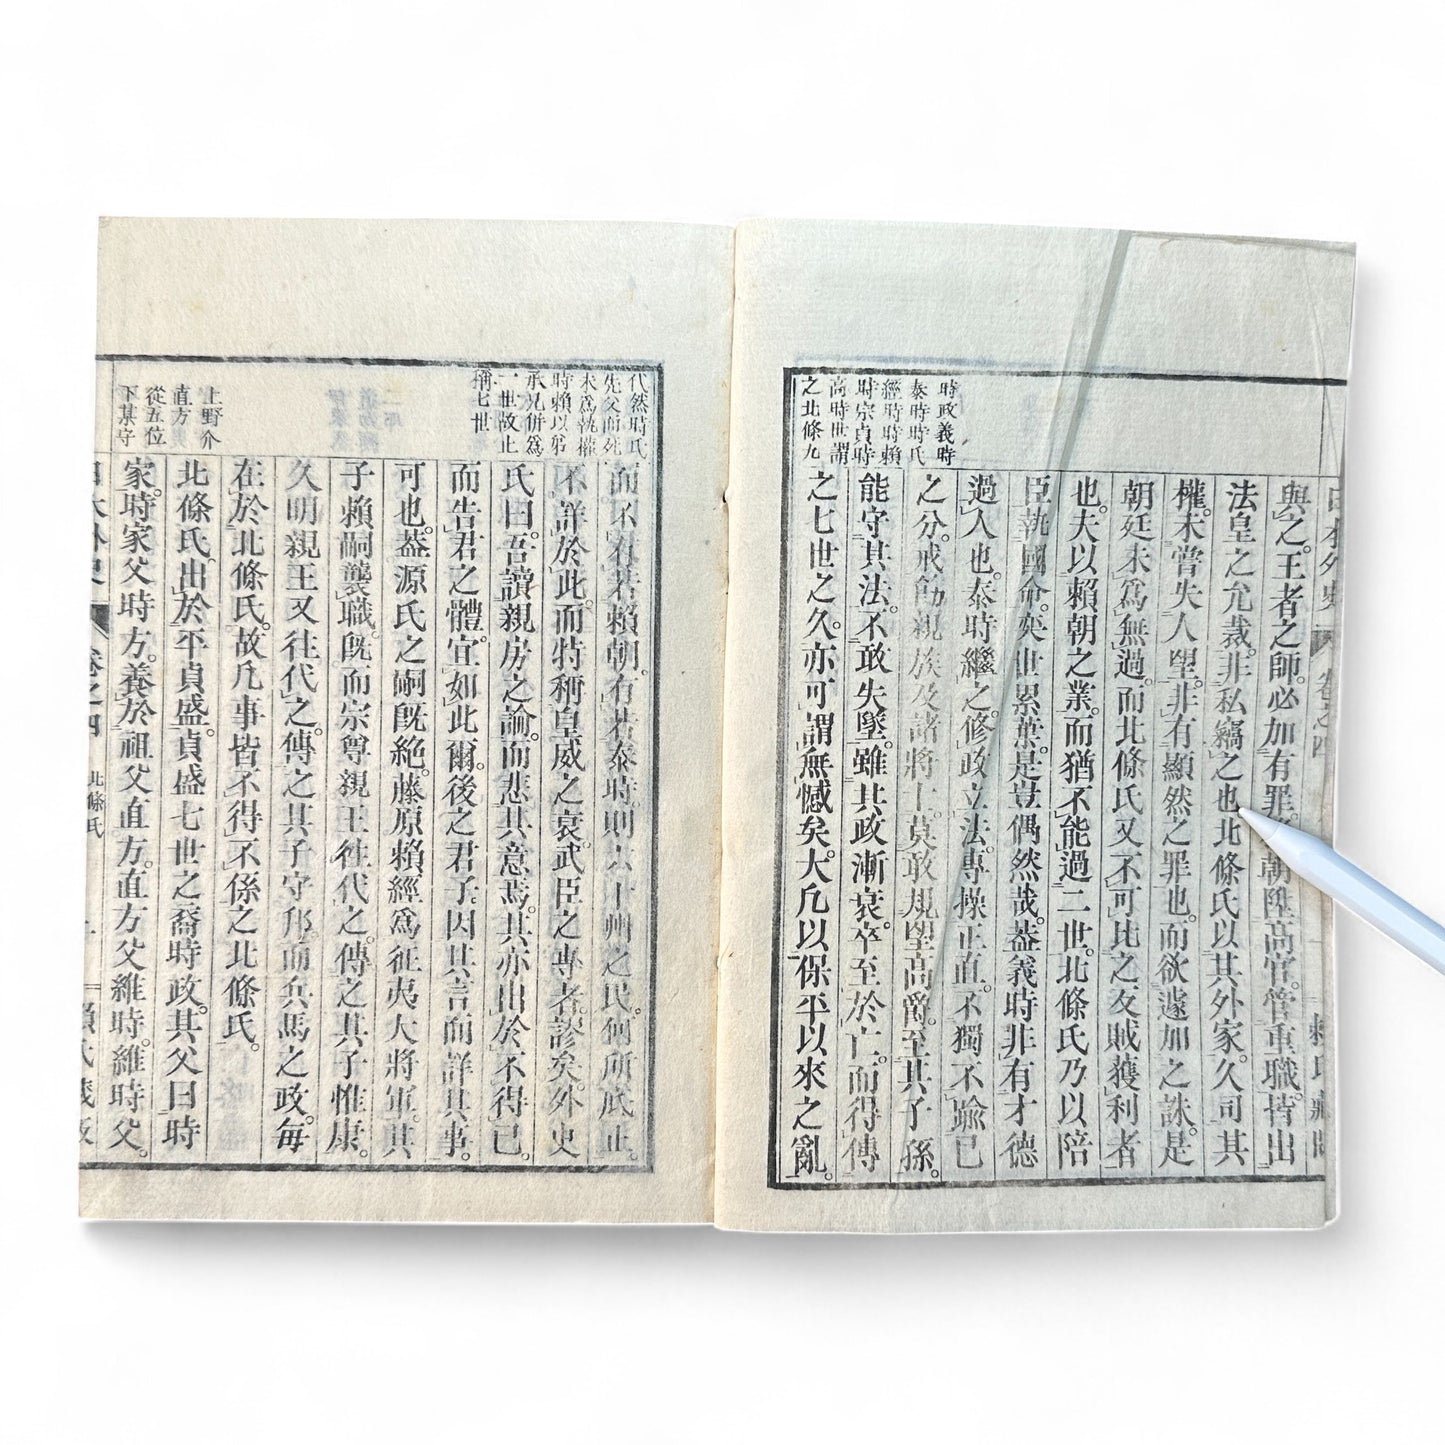 日本外史 卷之四 賴氏藏版
與之。王者之師。必加有罪。朝陞高官。管重職。皆出
法皇之允裁。非私竊之也。北條氏以其外家。久司其
權。未嘗失人望。非有顯然之罪也。而欲遽加之誅。是
朝廷未爲無過。而北條氏又不可比之友賊獲利者
也。夫以賴朝之業。而猶不能過二世。北條氏乃以陪
臣執國命。奕世累葉。是豈偶然哉。蓋義時非有才德
過人也。泰時繼之。修政立法。專操正直。不獨不踰己
之分。戒飭親族及諸將士。莫敢規望高爵。至其子孫。
能守其法。不敢失墜。雖其政漸衰。卒至於亡。而得傳
之七世之久。亦可謂無憾矣。大凡以保平以來之亂。
時政義時
泰時時氏
經時時賴
時宗貞時
高時世謂
之北條九
代然時氏
先父而死
未爲執權
時賴以弟
承兄併爲
一世故止
稱七世
而不有若賴朝。有若泰時。則六十州之民。何所底止。
不詳於此。而特稱皇威之衰。武臣之專者。謬矣。外史
氏曰。吾讀親房之論。而悲其意焉。其亦出於不得已
而告君之體。宜如此爾。後之君子。因其言而詳其事。
可也。蓋源氏之嗣旣絶。藤原賴經爲征夷大將軍。其
子賴嗣襲職。旣而宗尊親王徃代之。傳之其子惟康。
久明親王又往代之。傳之其子守邦。而兵馬之政。每
在於北條氏。故凡事皆不得不係之北條氏。
北條氏。出於平貞盛。貞盛七世之裔時政。其父曰時
家。時家父時方。養於祖父直方。直方父維時。維時父
上野介
直方
從五位
下某守
日本外史 卷之四 北條氏 賴氏藏版